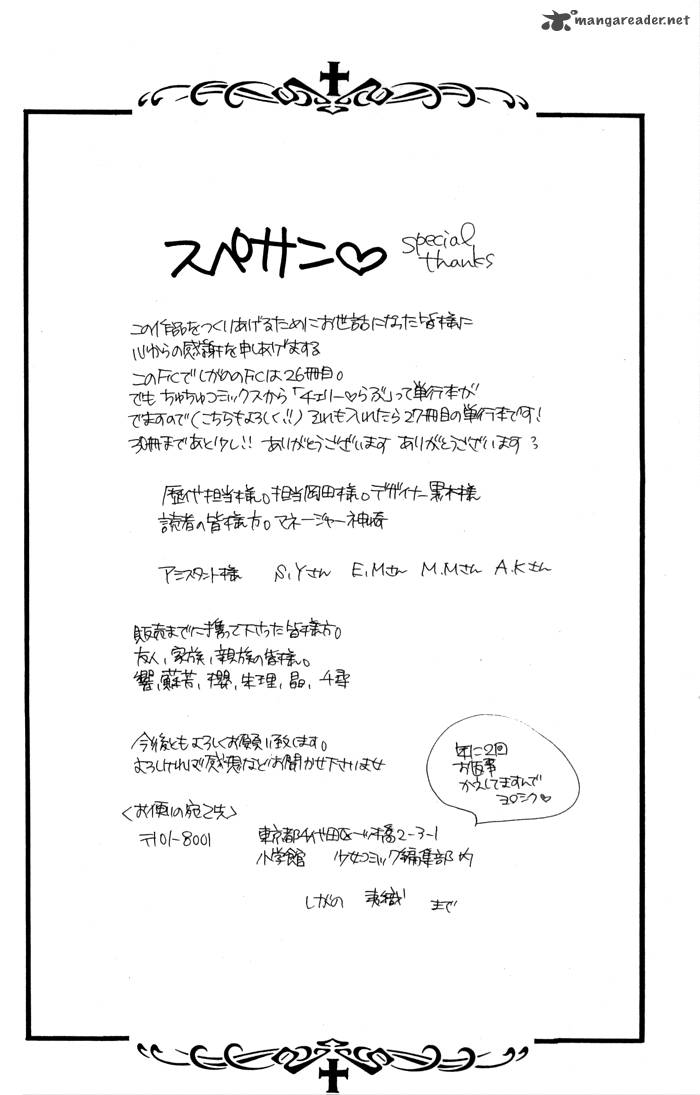 mangareader.net
スペサン♡ special thanks
この作品をつくりあげるためにお世話になった皆様に
心からの感謝を申しあげまする
このFCでしがののFCは26冊目。
でも ちゅちゅコミックスから「チェリー♡らぶ」って単行本が
でますので(こちらもよろしく!!) それも入れたら27冊目の単行本です!
30冊まであと少し!! ありがとうございます ありがとうございます
歴代担当様。担当岡田様。デザイナー黒木様
読者の皆様方。マネージャー神崎
アシスタント様 S.Yさん E.Mさん M.Mさん A.Kさん
販売までに携って下さった皆様方。
友人、家族、親族の皆様。
響、蘇芳、櫻、朱理、晶、千尋
今後ともよろしくお願い致します。
よろしければ感想などお聞かせ下さいませ
年に2回
お返事
かえしてますんで
ヨロシク♡
<お便りの宛て先>
〒101-8001 東京都千代田区一ツ橋2-3-1
小学館 少女コミック編集部内
しがの 夷織 まで